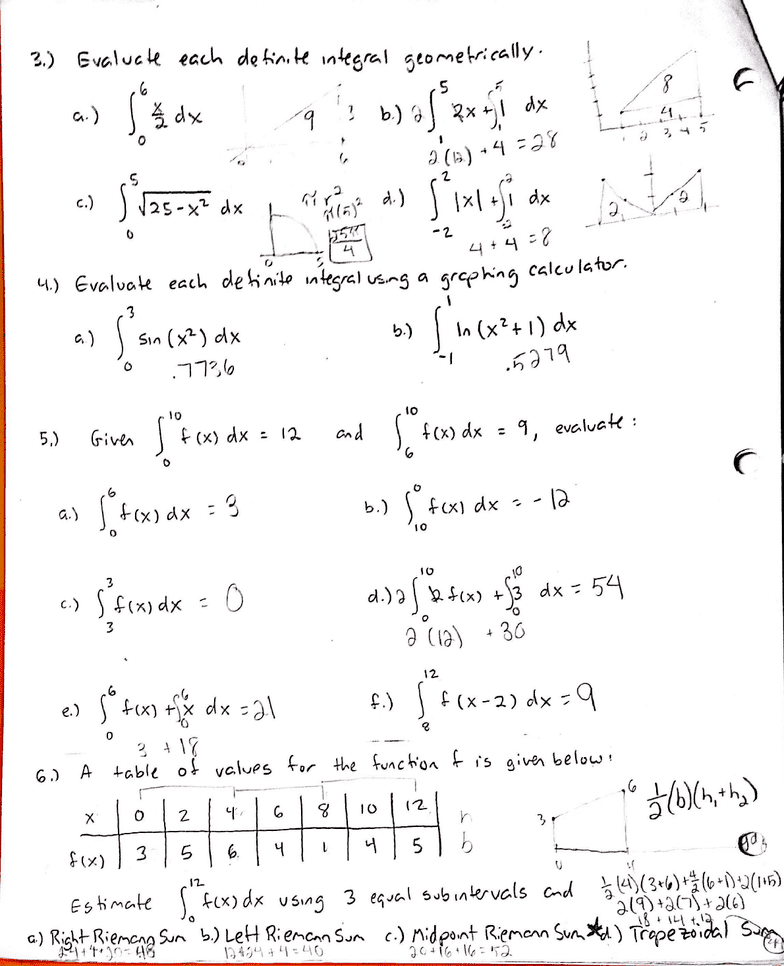 3.) Evaluate each definite integral geometrically.
a.) ∫₀⁶ x/2 dx 9 b.) 2∫₁⁵ 2x + ∫₁⁵ 1 dx 8 4 2 3 4 5
2(12) + 4 = 28
c.) ∫₀⁵ √(25-x²) dx πr² π(5)² 25π/4 d.) ∫₋₂² |x| + ∫₋₂² 1 dx 2 2
4 + 4 = 8
4.) Evaluate each definite integral using a graphing calculator.
a.) ∫₀³ sin(x²) dx b.) ∫₋₁¹ ln(x²+1) dx
.7736 .5279
5.) Given ∫₀¹⁰ f(x) dx = 12 and ∫₆¹⁰ f(x) dx = 9, evaluate:
a.) ∫₀⁶ f(x) dx = 3 b.) ∫₁₀⁰ f(x) dx = -12
c.) ∫₃³ f(x) dx = 0 d.) 2∫₀¹⁰ 2f(x) + ∫₀¹⁰ 3 dx = 54
2(12) + 30
e.) ∫₀⁶ f(x) + ∫₀⁶ x dx = 21 f.) ∫₈¹² f(x-2) dx = 9
3 + 18
6.) A table of values for the function f is given below:
x 0 2 4 6 8 10 12 h 3 6 ½(b)(h₁+h₂)
f(x) 3 5 6 4 1 4 5 b 0 4
Estimate ∫₀¹² f(x) dx using 3 equal subintervals and ½(4)(3+6)+4/2(6+1)+2(1+5)
2(9)+2(7)+2(6)
18 + 14 + 12
a.) Right Riemann Sum b.) Left Riemann Sum c.) Midpoint Riemann Sum d.) Trapezoidal Sum
24+4+20=48 12+24+4=40 20+16+16=52